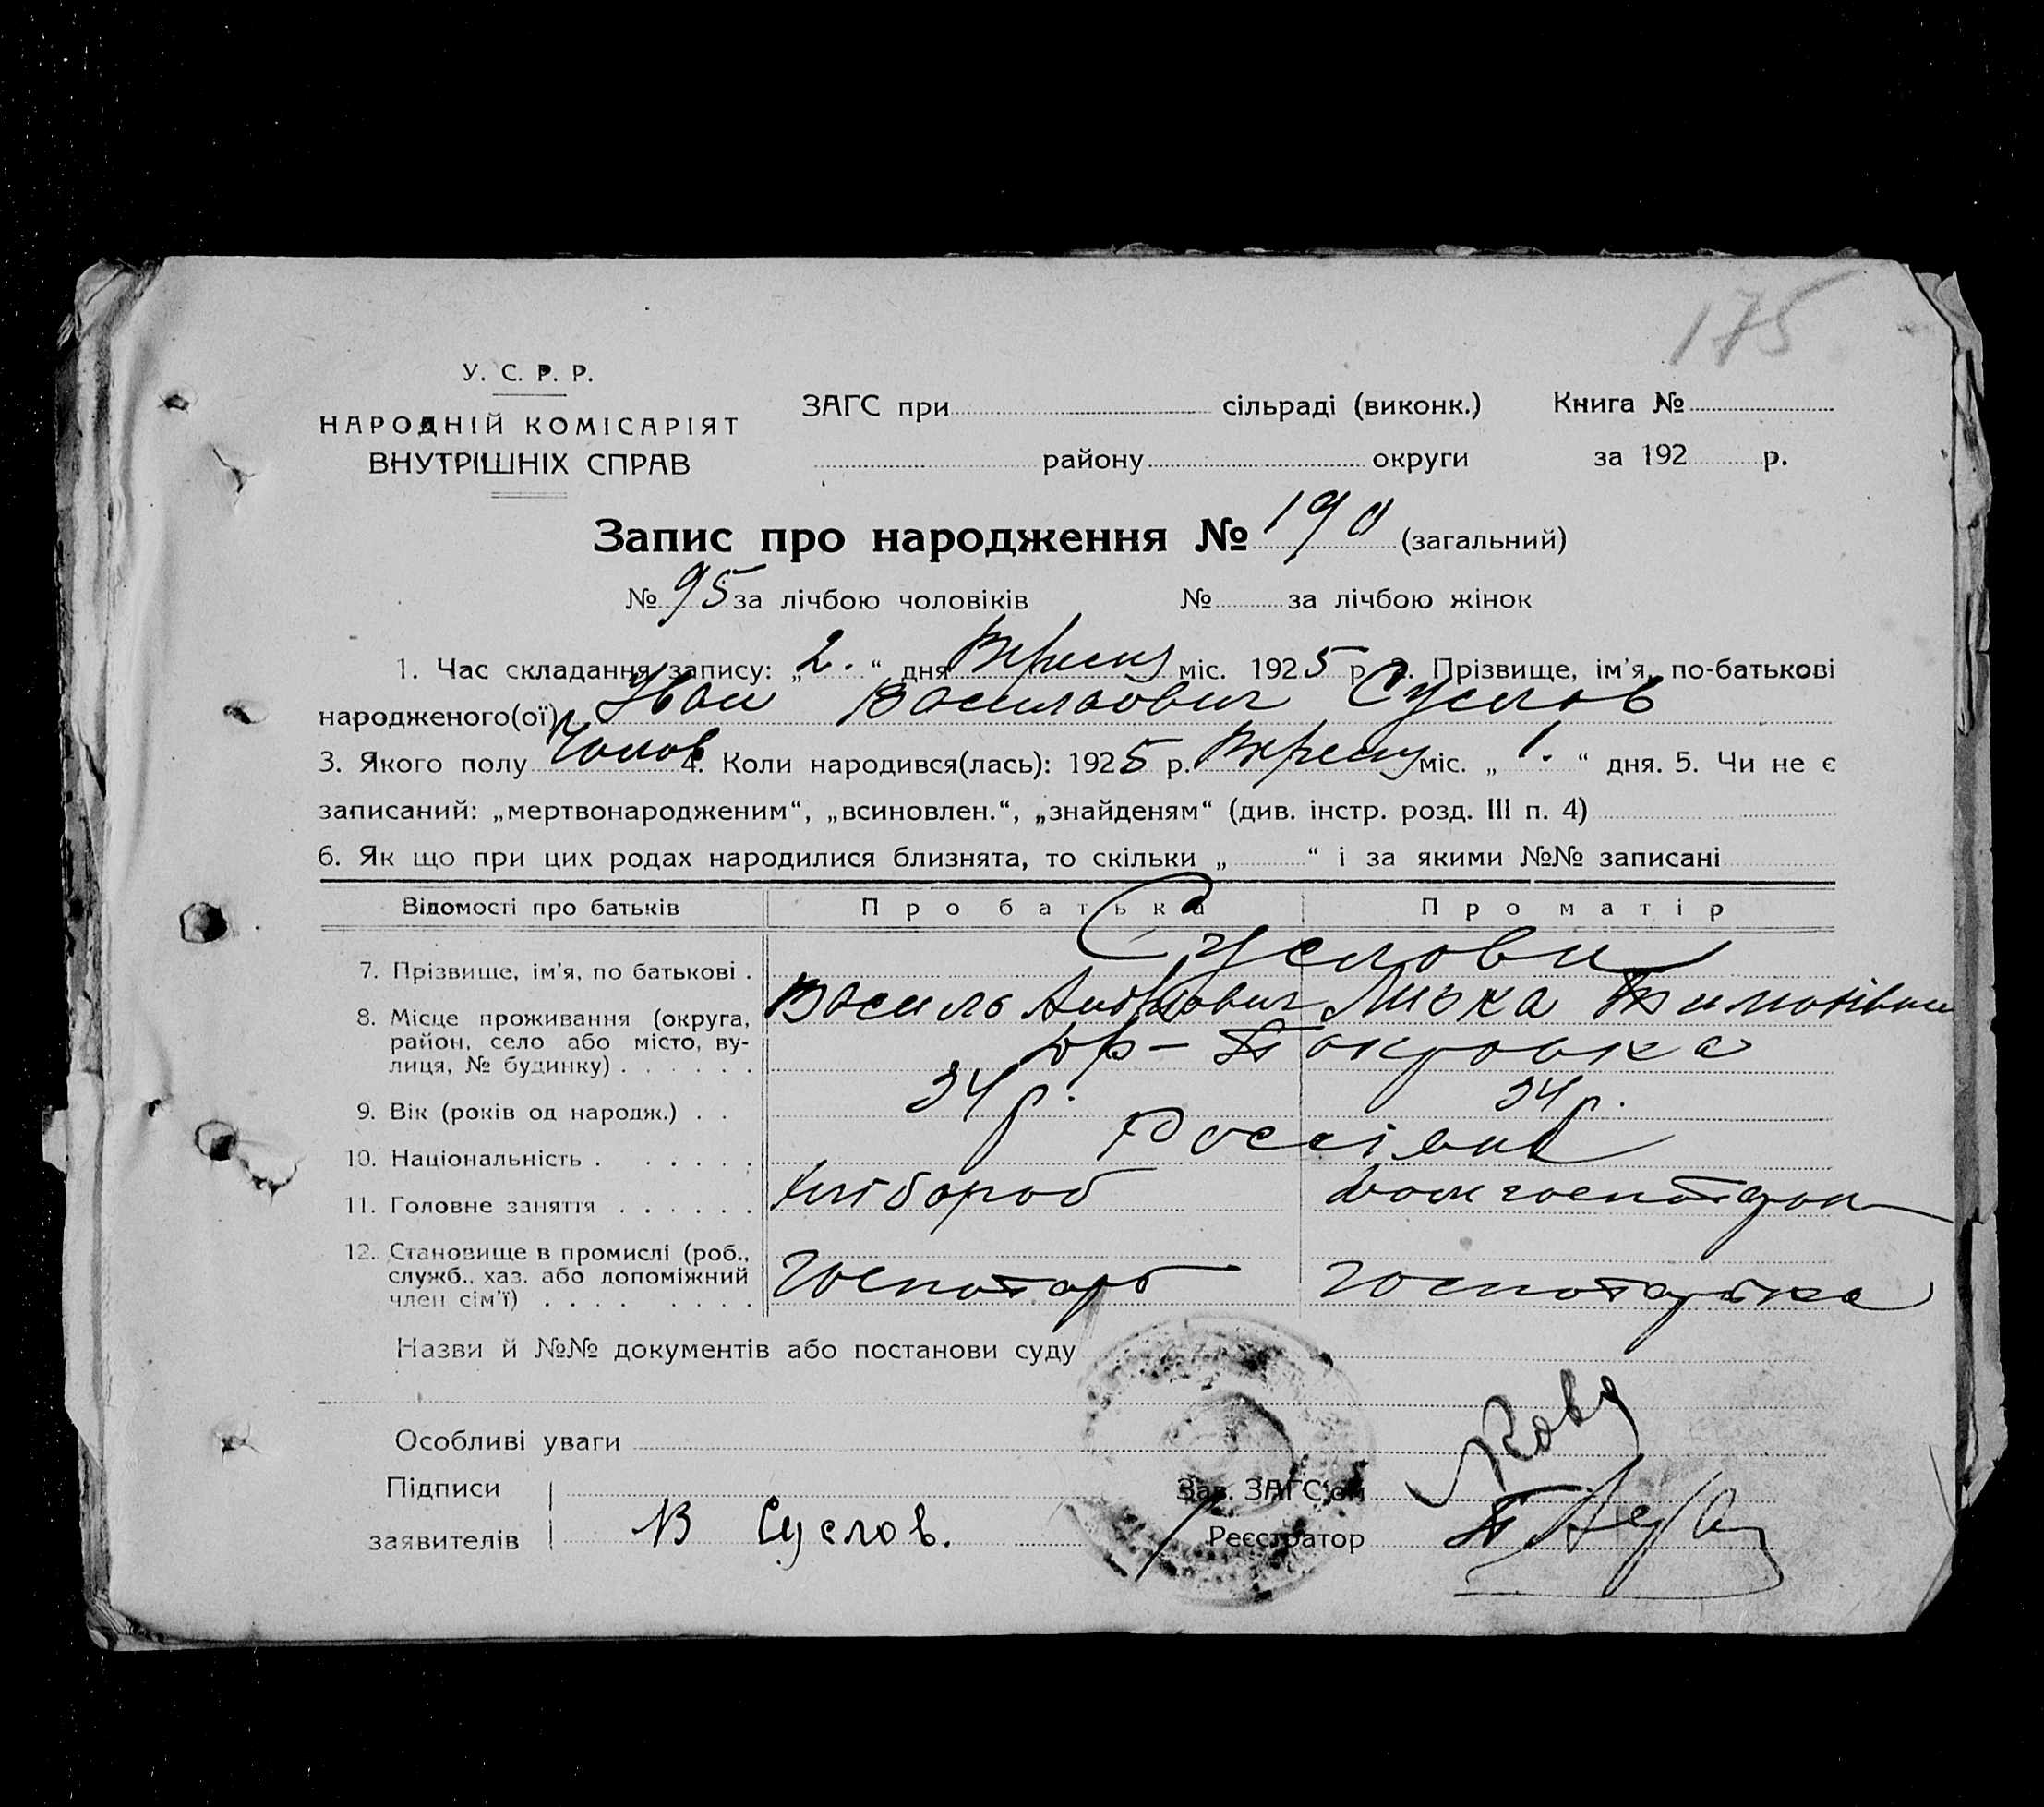 175
У. С. Р. Р.
НАРОДНІЙ КОМІСАРІЯТ
ВНУТРІШНІХ СПРАВ
ЗАГС при сільраді (виконк.) Книга №
району округи за 192 р.
Запис про народження № 190 (загальний)
№ 95 за лічбою чоловіків № за лічбою жінок
1. Час складання запису: „2.“ дня Вересня міс. 1925 р 2. Прізвище, ім'я, по-батькові
народженого(ої) Іван Васильович Суслов
3. Якого полу Чолов 4. Коли народився(лась): 1925 р. Вересня міс. „1.“ дня. 5. Чи не є
записаний: „мертвонародженим“, „всиновлен.“, „знайденям“ (див. інстр. розд. III п. 4)
6. Як що при цих родах народилися близнята, то скільки „ “ і за якими №№ записані
Відомості про батьків Про батька Про матір
7. Прізвище, ім'я, по батькові . Суслови
Василь Тимофівна
8. Місце проживання (округа,
район, село або місто, ву-
лиця, № будинку) . . . . . . Покровка
9. Вік (років од народж.) . . 34 р. 34 р.
10. Національність . . . . . . Россіяни
11. Головне заняття . . . . . . Хлібороб
12. Становище в промислі (роб.,
служб., хаз. або допоміжний
член сім'ї) . . . . . . . . . Господарь господарька
Назви й №№ документів або постанови суду
Особливі уваги
Підписи
заявителів В Суслов.
Зав. ЗАГС'ом
Реєстратор